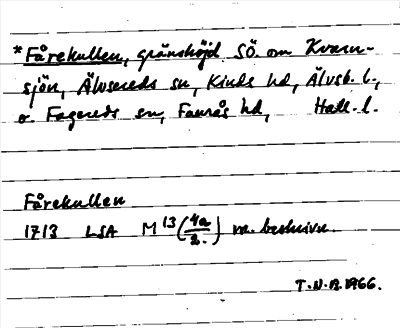 *Fårekullen, gränshöjd SÖ. om Kvarn-
sjön, Älvsereds sn, Kinds hd, Älvsb. l.,
o. Fagereds sn, Faurås hd, Hall. l.
Fårekullen
1713 LSA M 13 (4a/2.) m. beskrivn.
T.N.B. 1966.